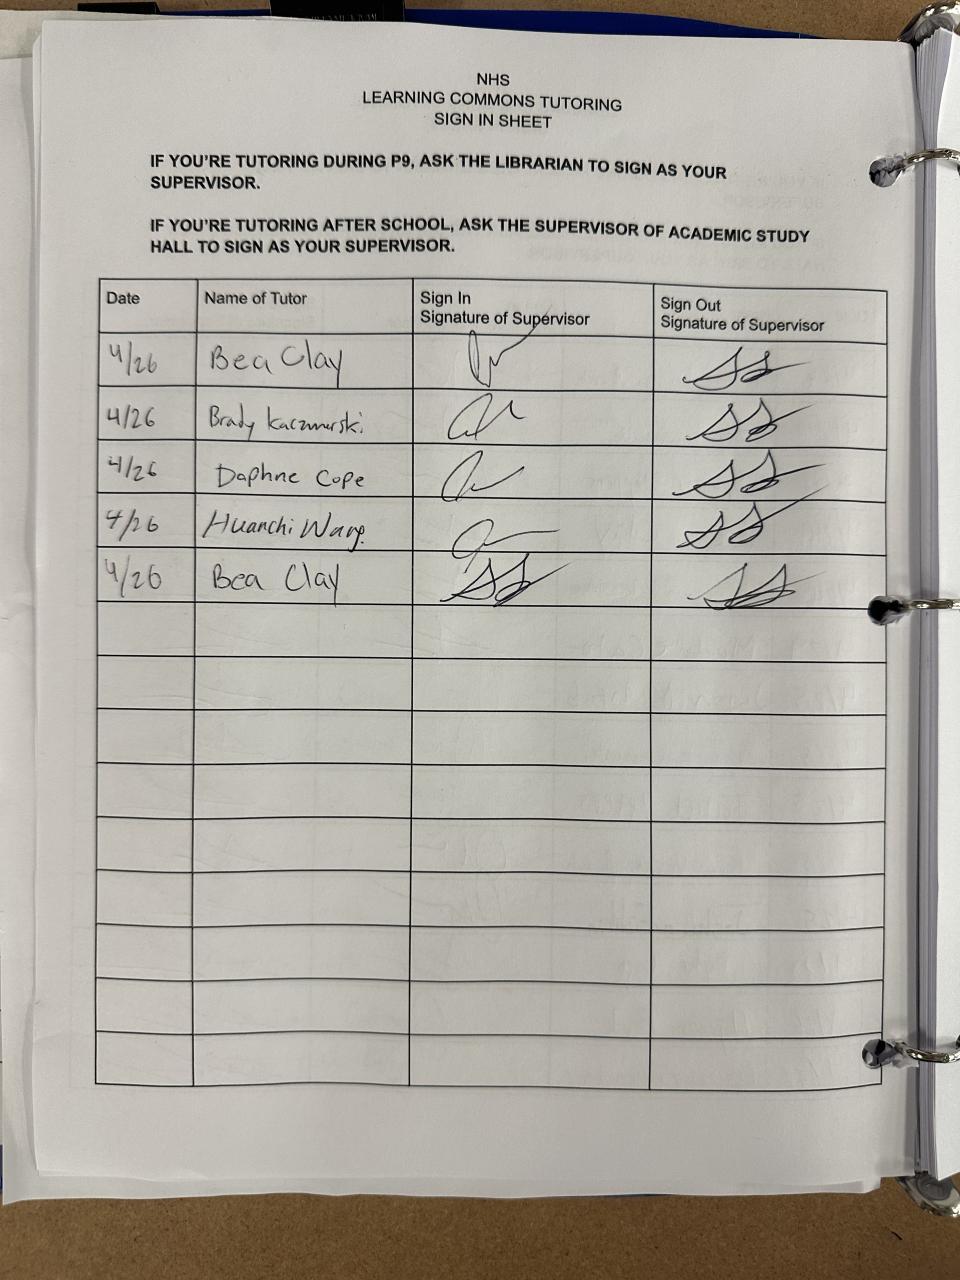 NHS
LEARNING COMMONS TUTORING
SIGN IN SHEET
IF YOU'RE TUTORING DURING P9, ASK THE LIBRARIAN TO SIGN AS YOUR
SUPERVISOR.
IF YOU'RE TUTORING AFTER SCHOOL, ASK THE SUPERVISOR OF ACADEMIC STUDY
HALL TO SIGN AS YOUR SUPERVISOR.
Date Name of Tutor Sign In Signature of Supervisor Sign Out Signature of Supervisor
4/26 Bea Clay SS
4/26 Brady SS
4/26 Daphne Cope SS
4/26 Huanchi Wang SS
4/26 Bea Clay SS SS